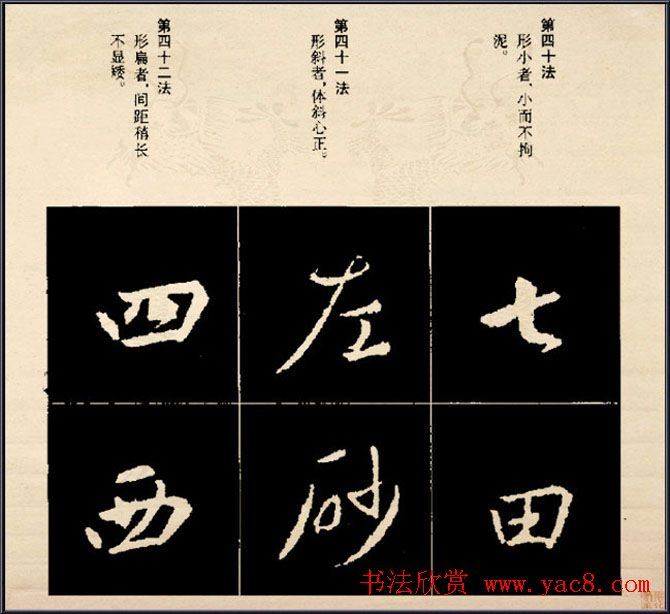 第四十法
形小者，小而不拘
泥。
第四十一法
形斜者，体斜心正。
第四十二法
形扁者，间距稍长
不显矮。
七
田
左
砂
四
西
书法欣赏 www.yac8.com